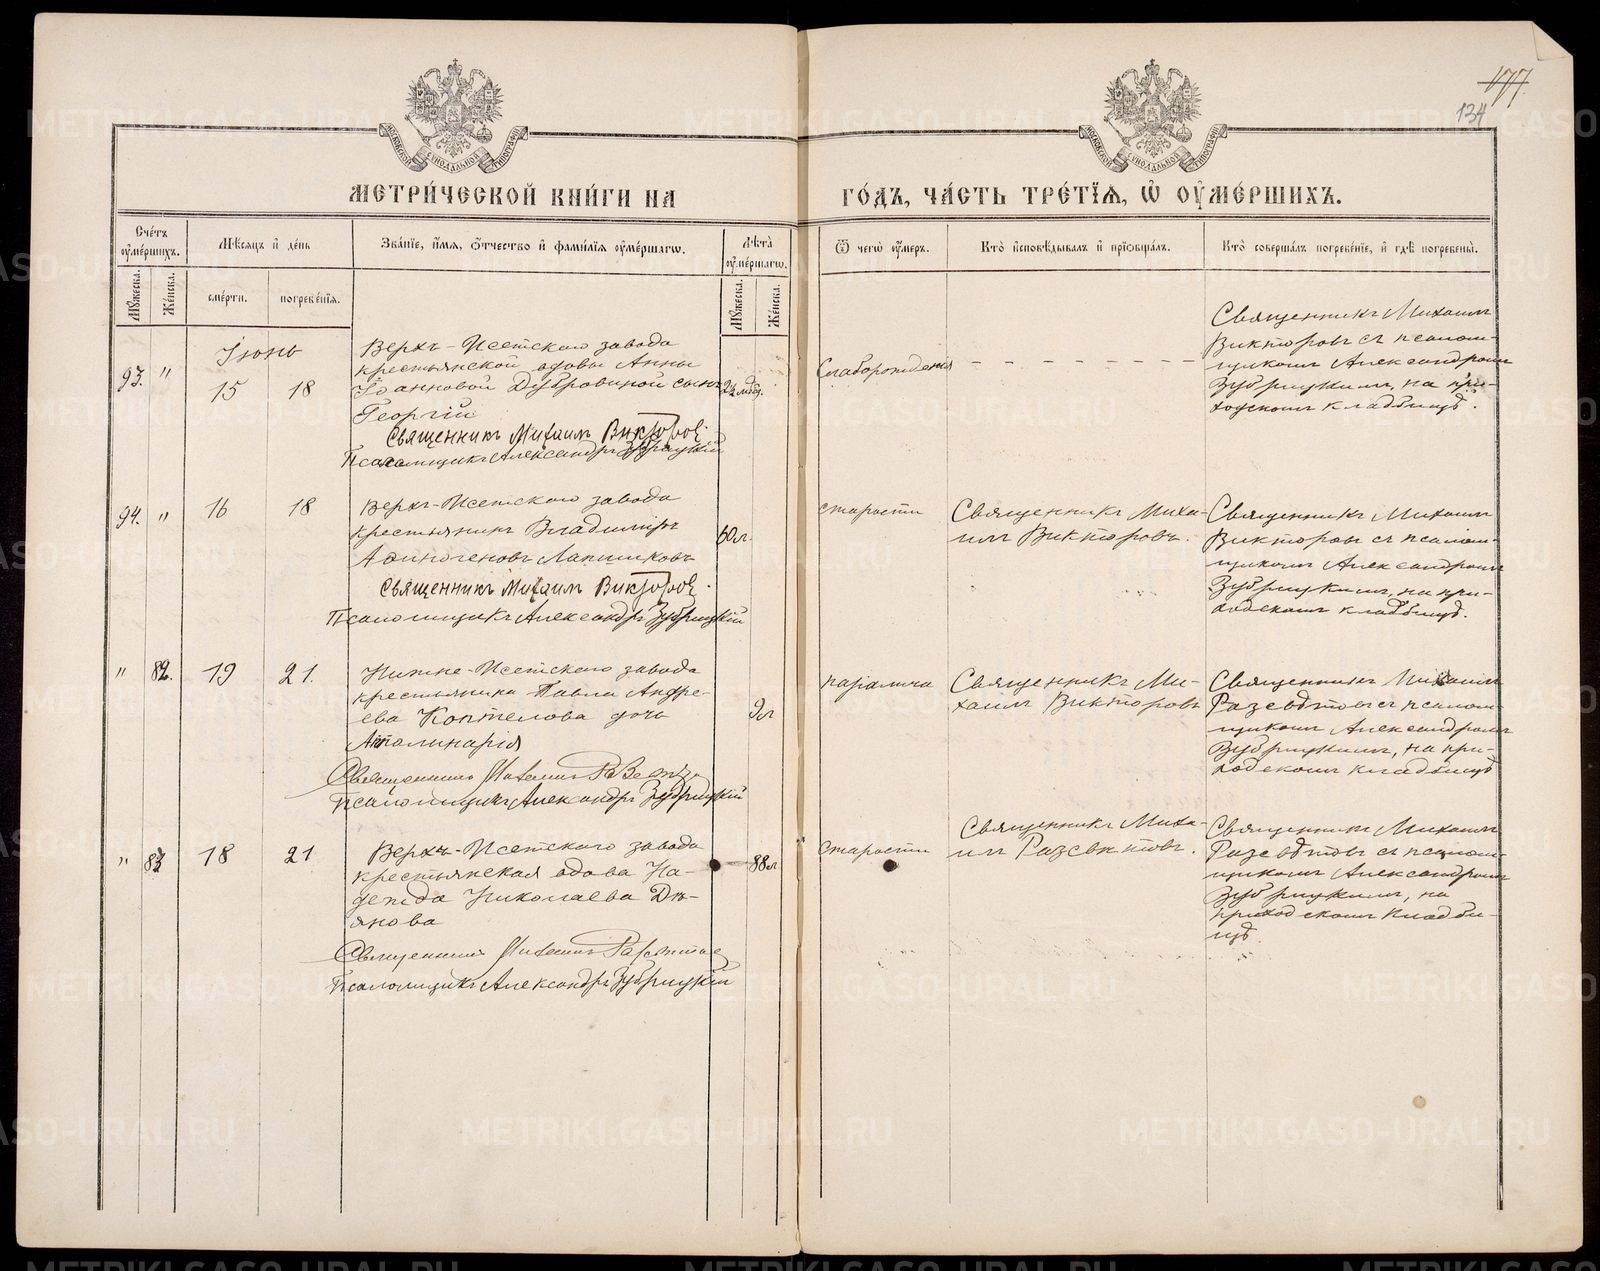 177
134
МОСКОВСКОЙ СѴНОДАЛЬНОЙ ТИПОГРАФІИ
МОСКОВСКОЙ СѴНОДАЛЬНОЙ ТИПОГРАФІИ
МЕТРИ́ЧЕСКОЙ КНИ́ГИ НА
ГО́ДЪ, ЧА́СТЬ ТРЕ́ТЇѦ, Ѡ҆ ОУ҆МЕ́РШИХЪ.
Сче́тъ оу҆ме́ршихъ.
Мѣ́сѧцъ и҆ де́нь
Зва́нїе, и҆́мѧ, ѻ҆́тчество и҆ фами́лїѧ оу҆ме́ршагѡ.
Лѣ́та оу҆ме́ршагѡ.
Ѿ чегѡ̀ оу҆́меръ.
Кто̀ и҆сповѣ́дывалъ и҆ прїѡбща́лъ.
Кто̀ соверша́лъ погребе́нїе, и҆ гдѣ̀ погребены̀.
Мꙋ́жеска.
Же́нска.
сме́рти.
погребе́нїѧ.
Мꙋ́жеска.
Же́нска.
Іюнь
93. " 15 18
Верхъ-Исетскаго завода
крестьянской вдовы Анны
Іоанновой Дубровиной сынъ
Георгій
Священникъ Михаилъ Викторовъ.
Псаломщикъ Александръ Зубрицкій
Слаборожденія
Священникъ Михаилъ
Викторовъ съ псалом-
щикомъ Александромъ
Зубрицкимъ, на при-
ходскомъ кладбищѣ.
94. " 16 18
Верхъ-Исетскаго завода
крестьянинъ Владиміръ
Аѳиногеновъ Лапшиковъ
Священникъ Михаилъ Викторовъ.
Псаломщикъ Александръ Зубрицкій
60 л.
старости
Священникъ Миха-
илъ Викторовъ.
Священникъ Михаилъ
Викторовъ съ псалом-
щикомъ Александромъ
Зубрицкимъ, на при-
ходскомъ кладбищѣ.
" 82. 19 21.
Нижне-Исетскаго завода
крестьянина Павла Андре-
ева Коптелова дочь
Аполинарія
Священникъ Михаилъ Разсвѣтовъ
Псаломщикъ Александръ Зубрицкій
9 л
паралича
Священникъ Ми-
хаилъ Викторовъ
Священникъ Михаилъ
Разсвѣтовъ съ псалом-
щикомъ Александромъ
Зубрицкимъ, на при-
ходскомъ кладбищѣ
" 83 18 21
Верхъ-Исетскаго завода
крестьянская вдова На-
дежда Николаева Дѣ-
янова
Священникъ Михаилъ Разсвѣтовъ
Псаломщикъ Александръ Зубрицкій
88 л
старости
Священникъ Миха-
илъ Разсвѣтовъ.
Священникъ Михаилъ
Разсвѣтовъ съ псалом-
щикомъ Александромъ
Зубрицкимъ, на
приходскомъ кладби-
щѣ.
METRIKI.GASO-URAL.RU